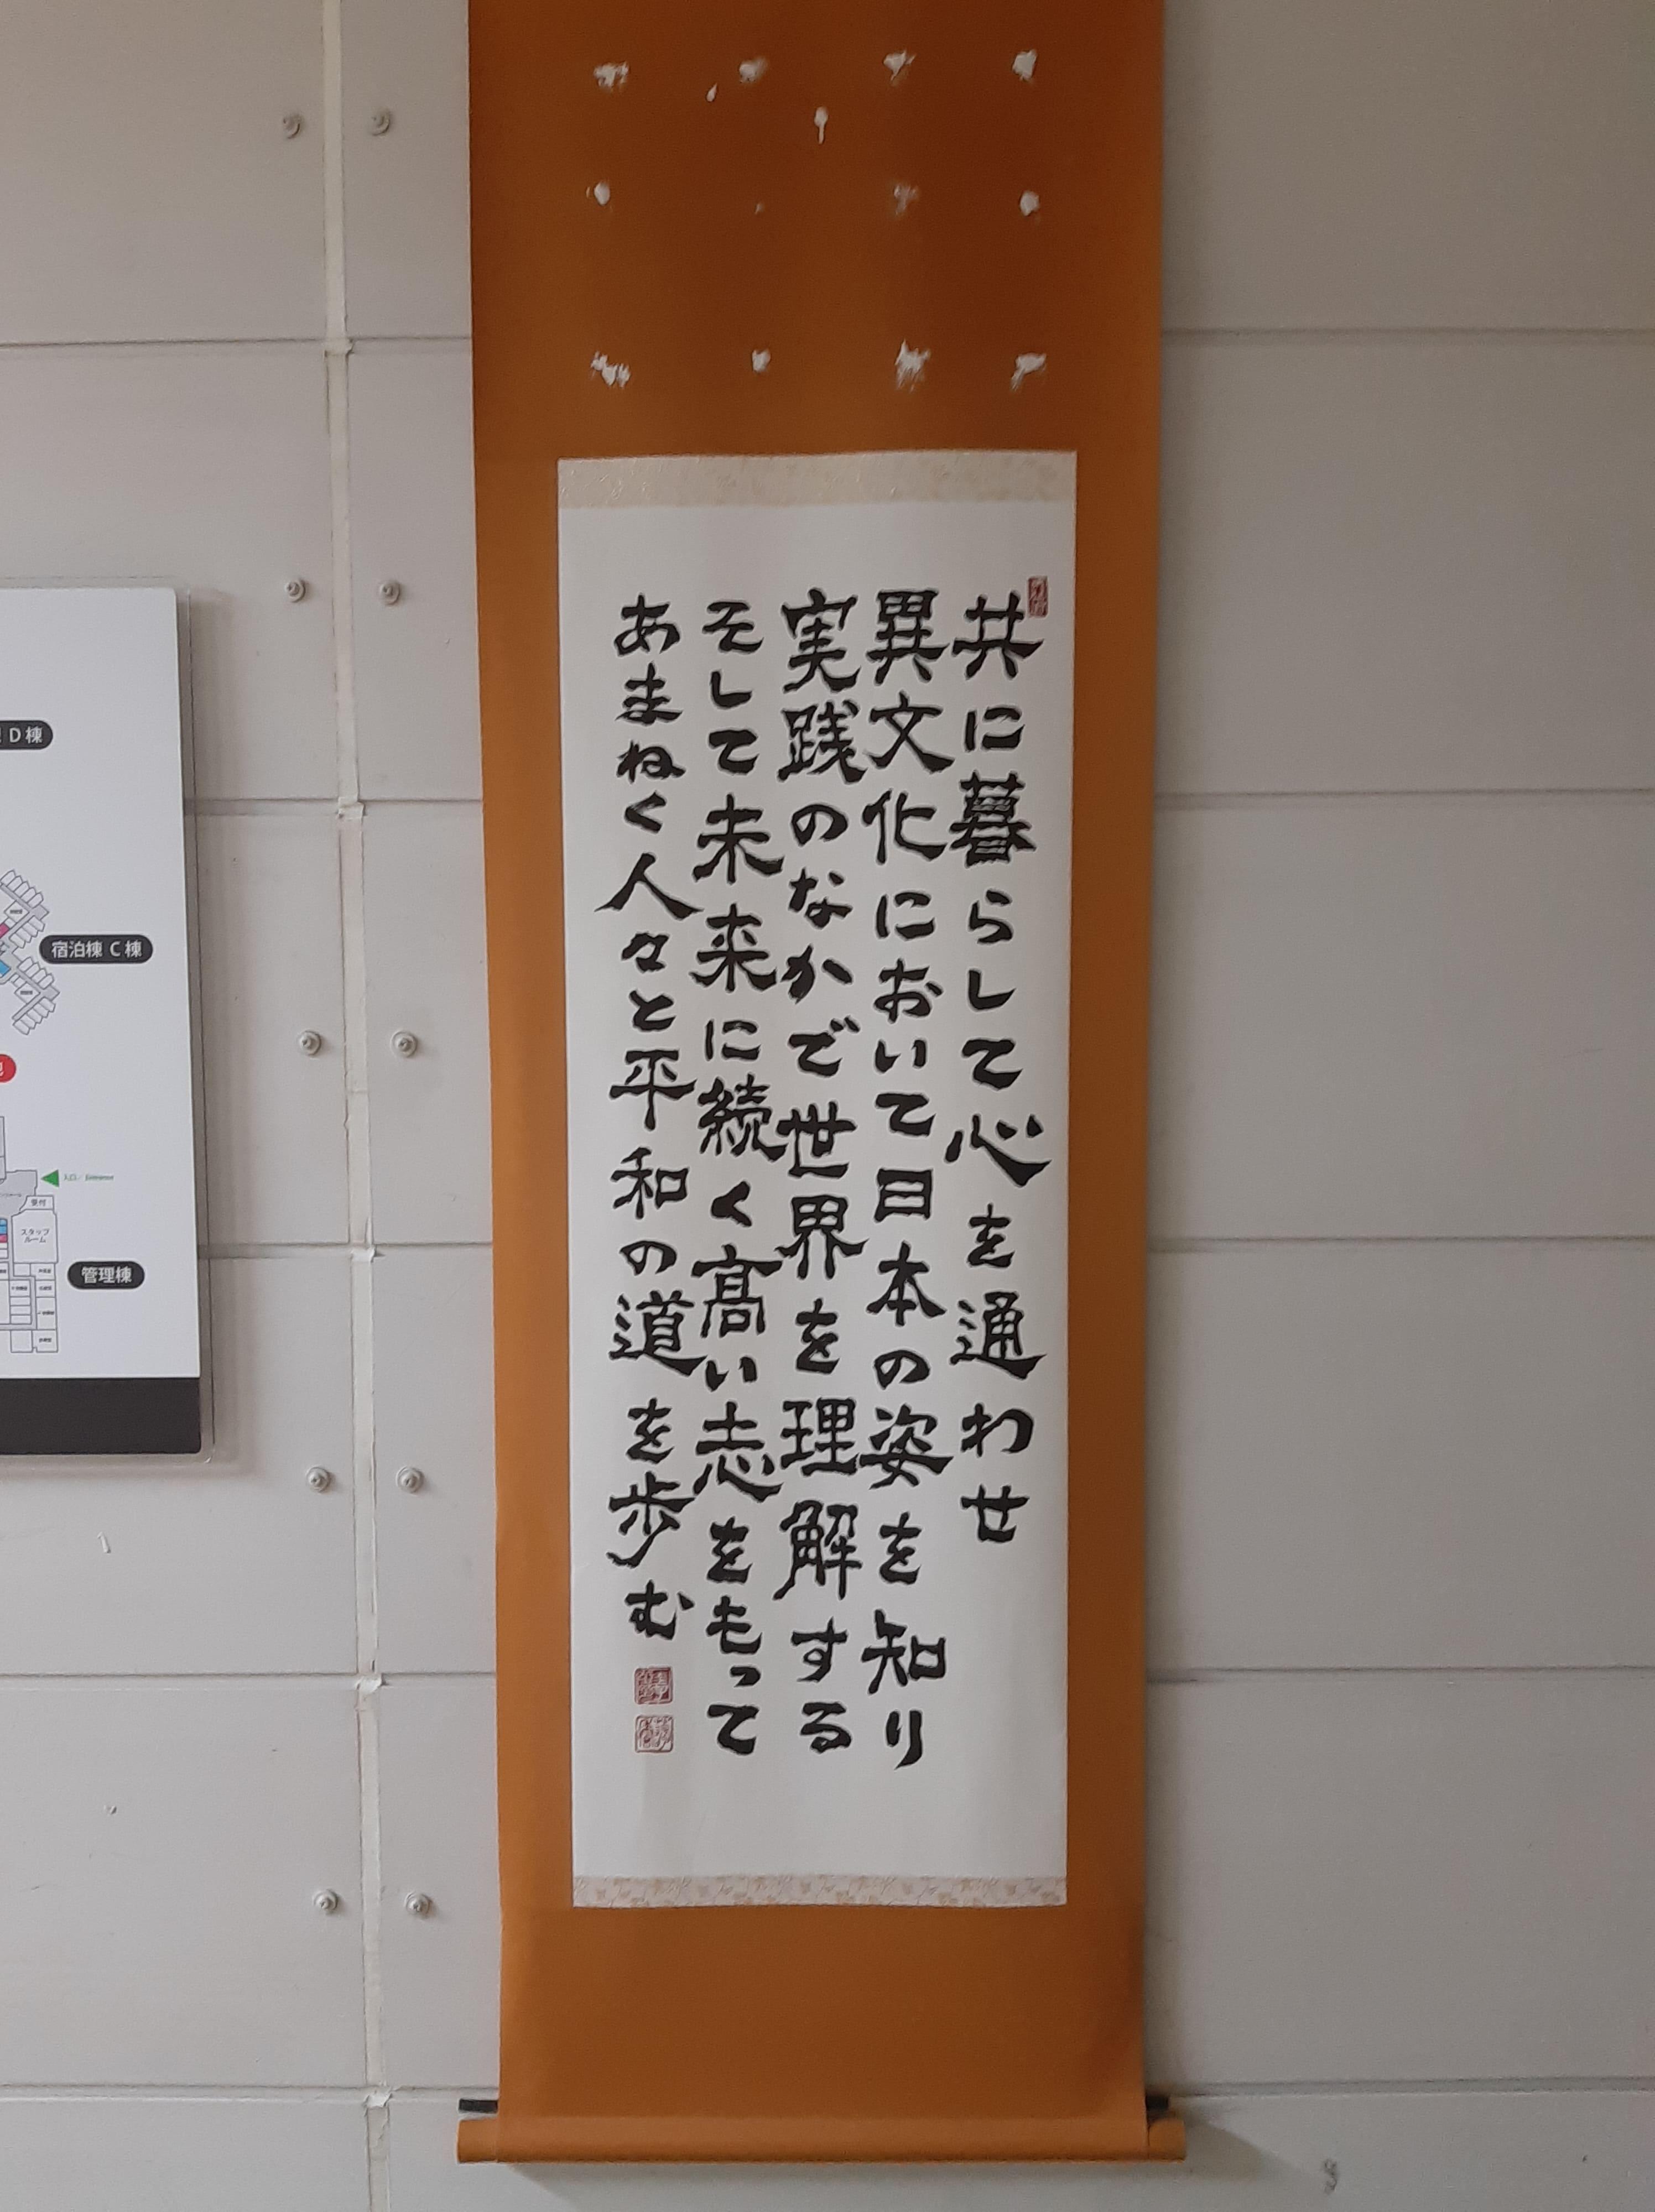 共に暮らして心を通わせ
異文化において日本の姿を知り
実践のなかで世界を理解する
そして未来に続く高い志をもって
あまねく人々と平和の道を歩む
D棟
宿泊棟 C棟
入口/Entrance
受付
スタッフ
ルーム
管理棟